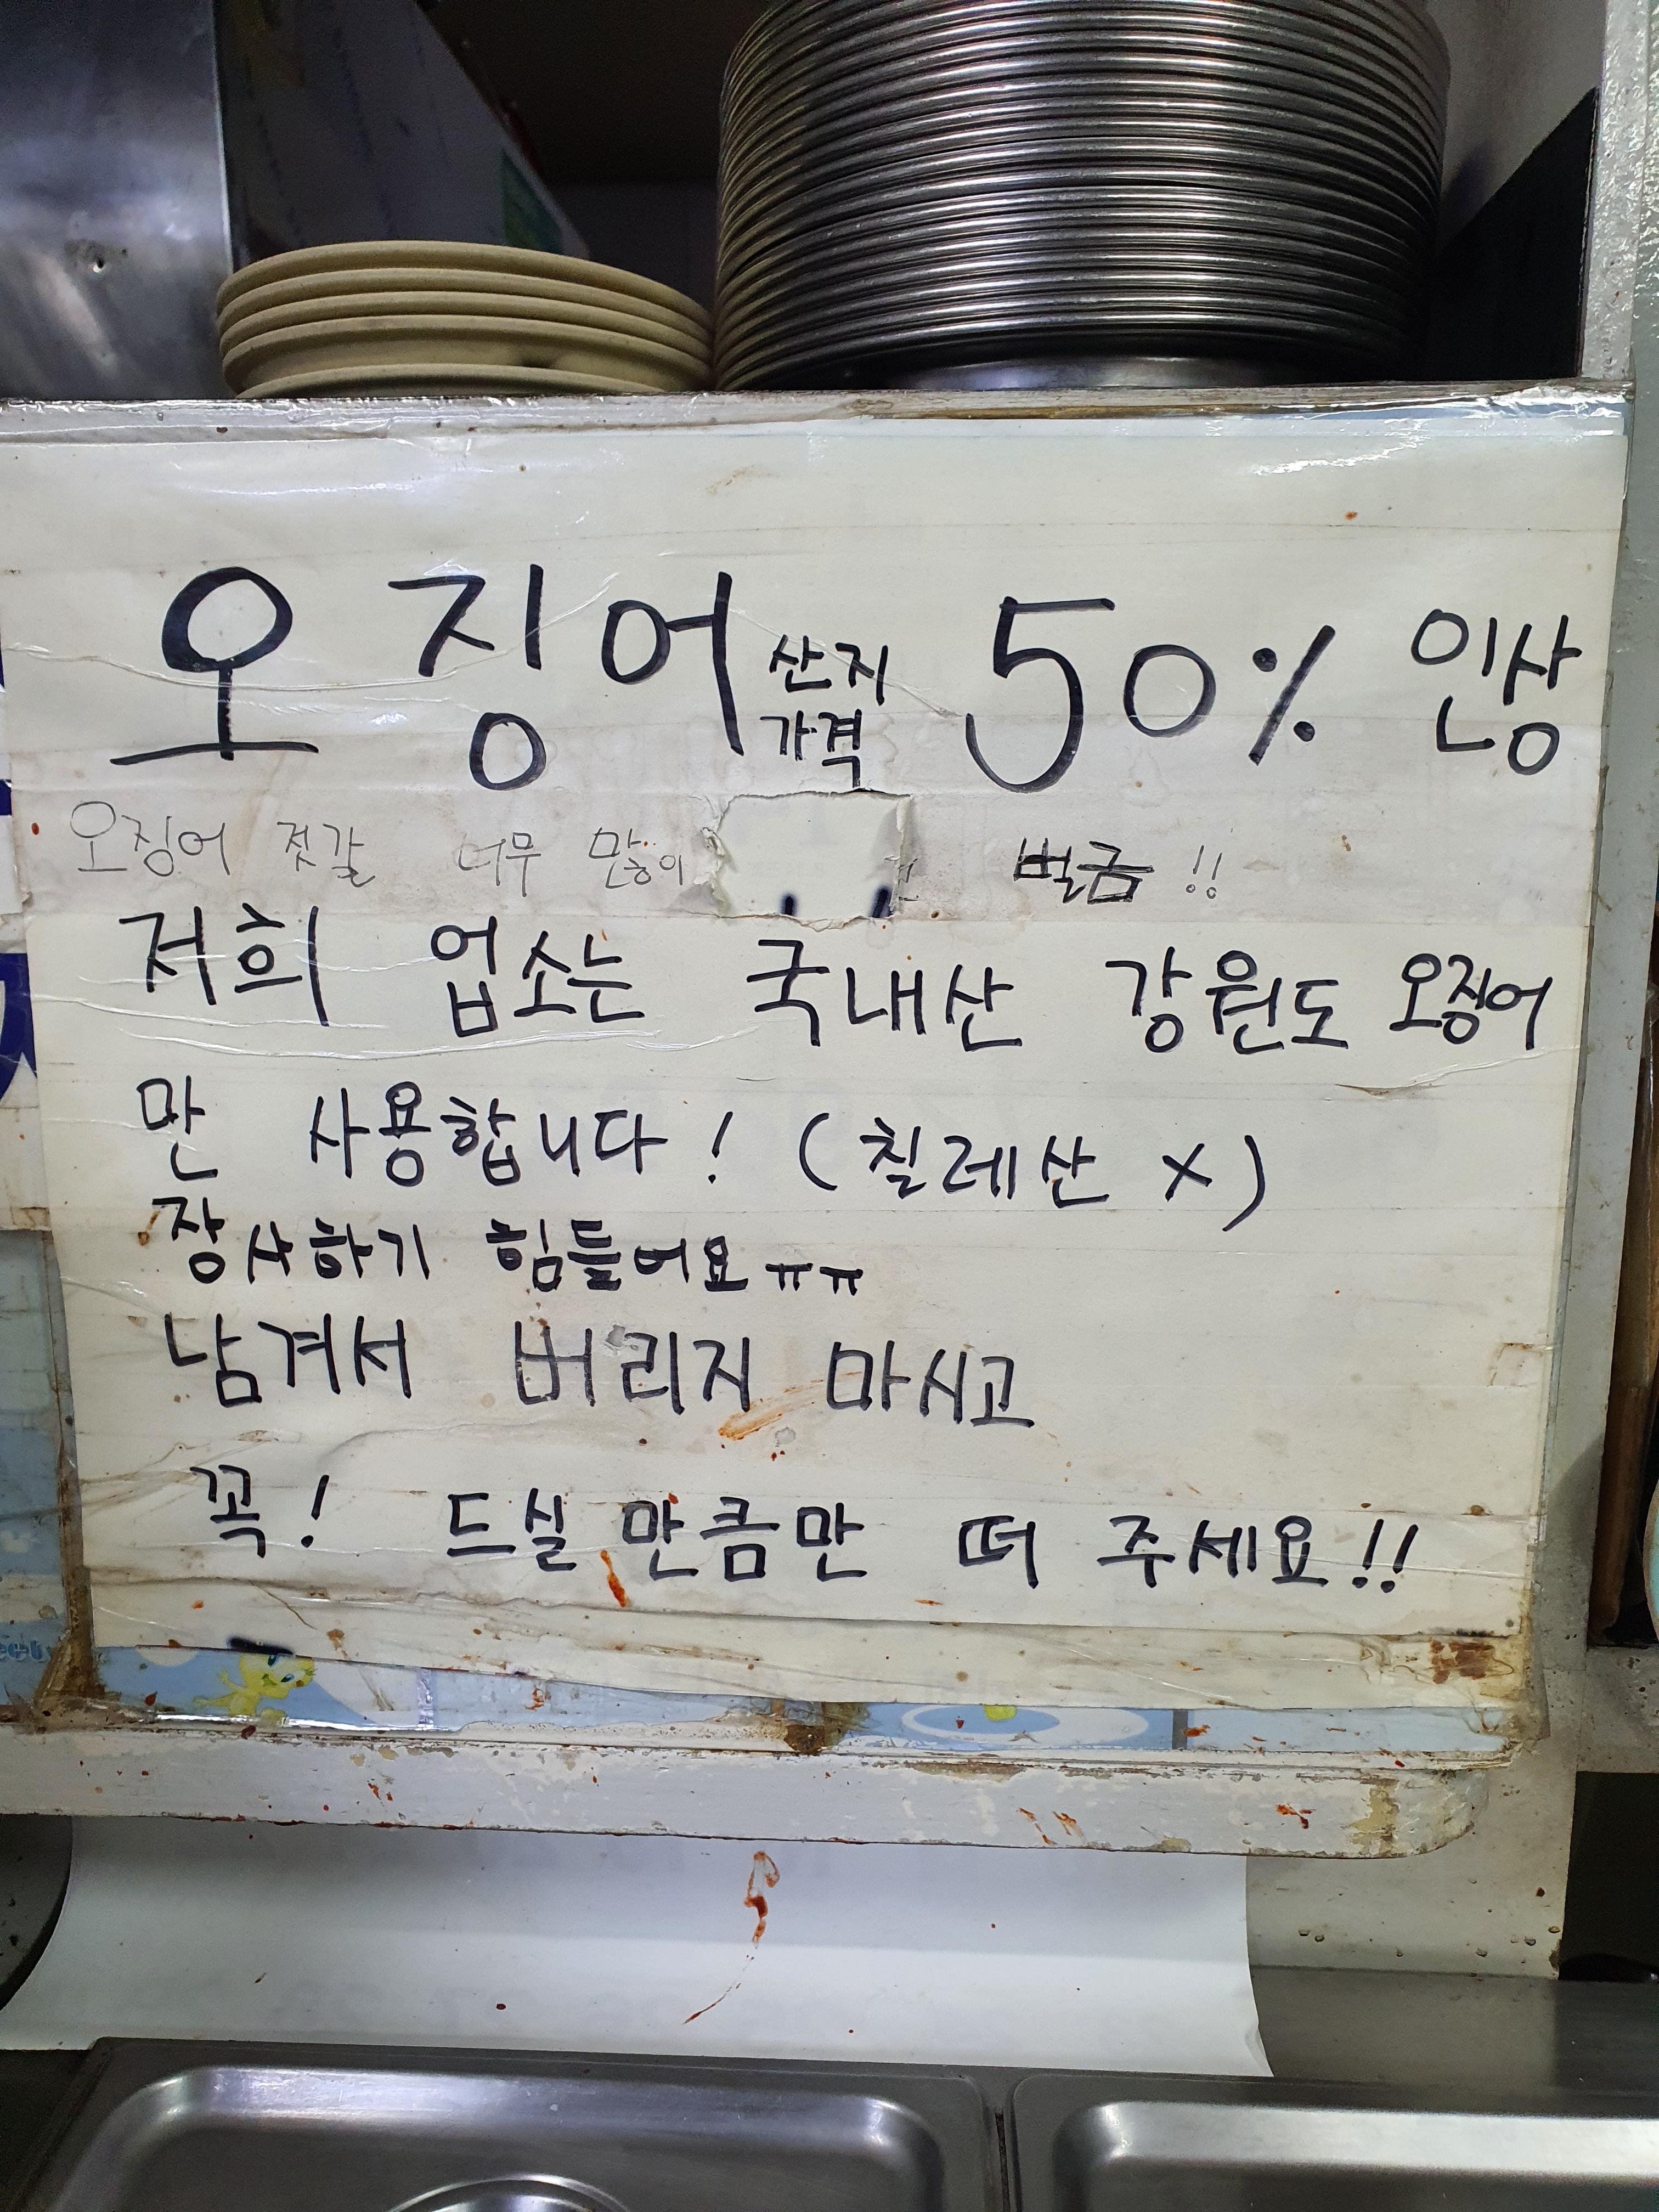 오징어 산지가격 50% 인상
오징어 젓갈 너무 많이 벌금!!
저희 업소는 국내산 강원도 오징어
만 사용합니다! (칠레산 X)
장사하기 힘들어요ㅠㅠ
남겨서 버리지 마시고
꼭! 드실 만큼만 떠 주세요!!